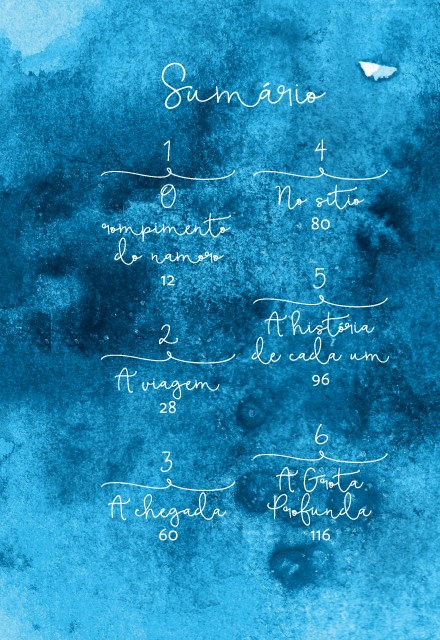 Sumário
1
O
rompimento
do namoro
12
2
A viagem
28
3
A chegada
60
4
No sítio
80
5
A história
de cada um
96
6
A Grota
Profunda
116